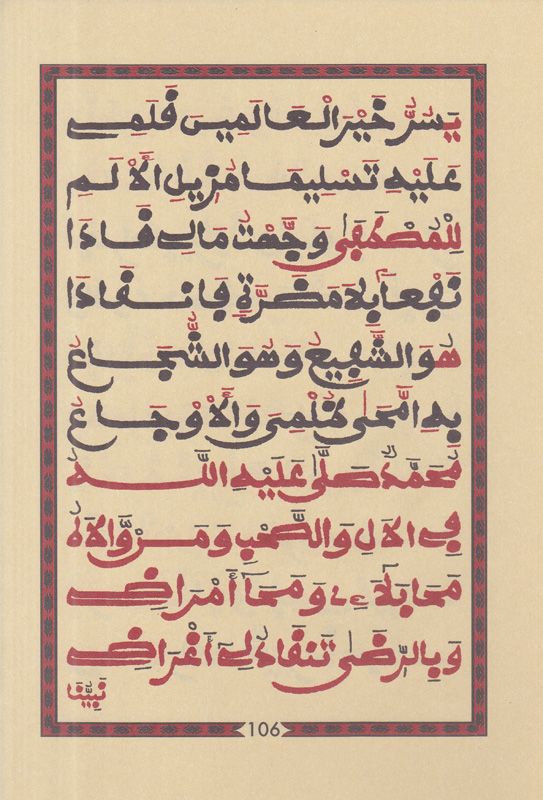 يَسُرُّ خَيْرَ الْعَالَمِينَ قَلَمِي
عَلَيْهِ تَسْلِيمَا مُزِيلِ الْأَلَمِ
لِلْمُصْطَفَى وَجَّهْتُ مَالِي قَادَا
نَفْعاً بِلَا مَضَرَّةٍ فَانْقَادَا
هُوَ الشَّفِيعُ وَهُوَ الشُّجَاعُ
بِهِ امَّحَى ظُلْمِي وَالْأَوْجَاعُ
مُحَمَّدٌ صَلَّى عَلَيْهِ اللَّهُ
فِي الْآلِ وَالصَّحْبِ وَمَنْ وَّالَاهُ
مَحَا بَلَاءِي وَمَحَا أَمْرَاضِي
وَبِالرِّضَى تَنْقَادُ لِي أَغْرَاضِي
نَبِيُّنَا
106